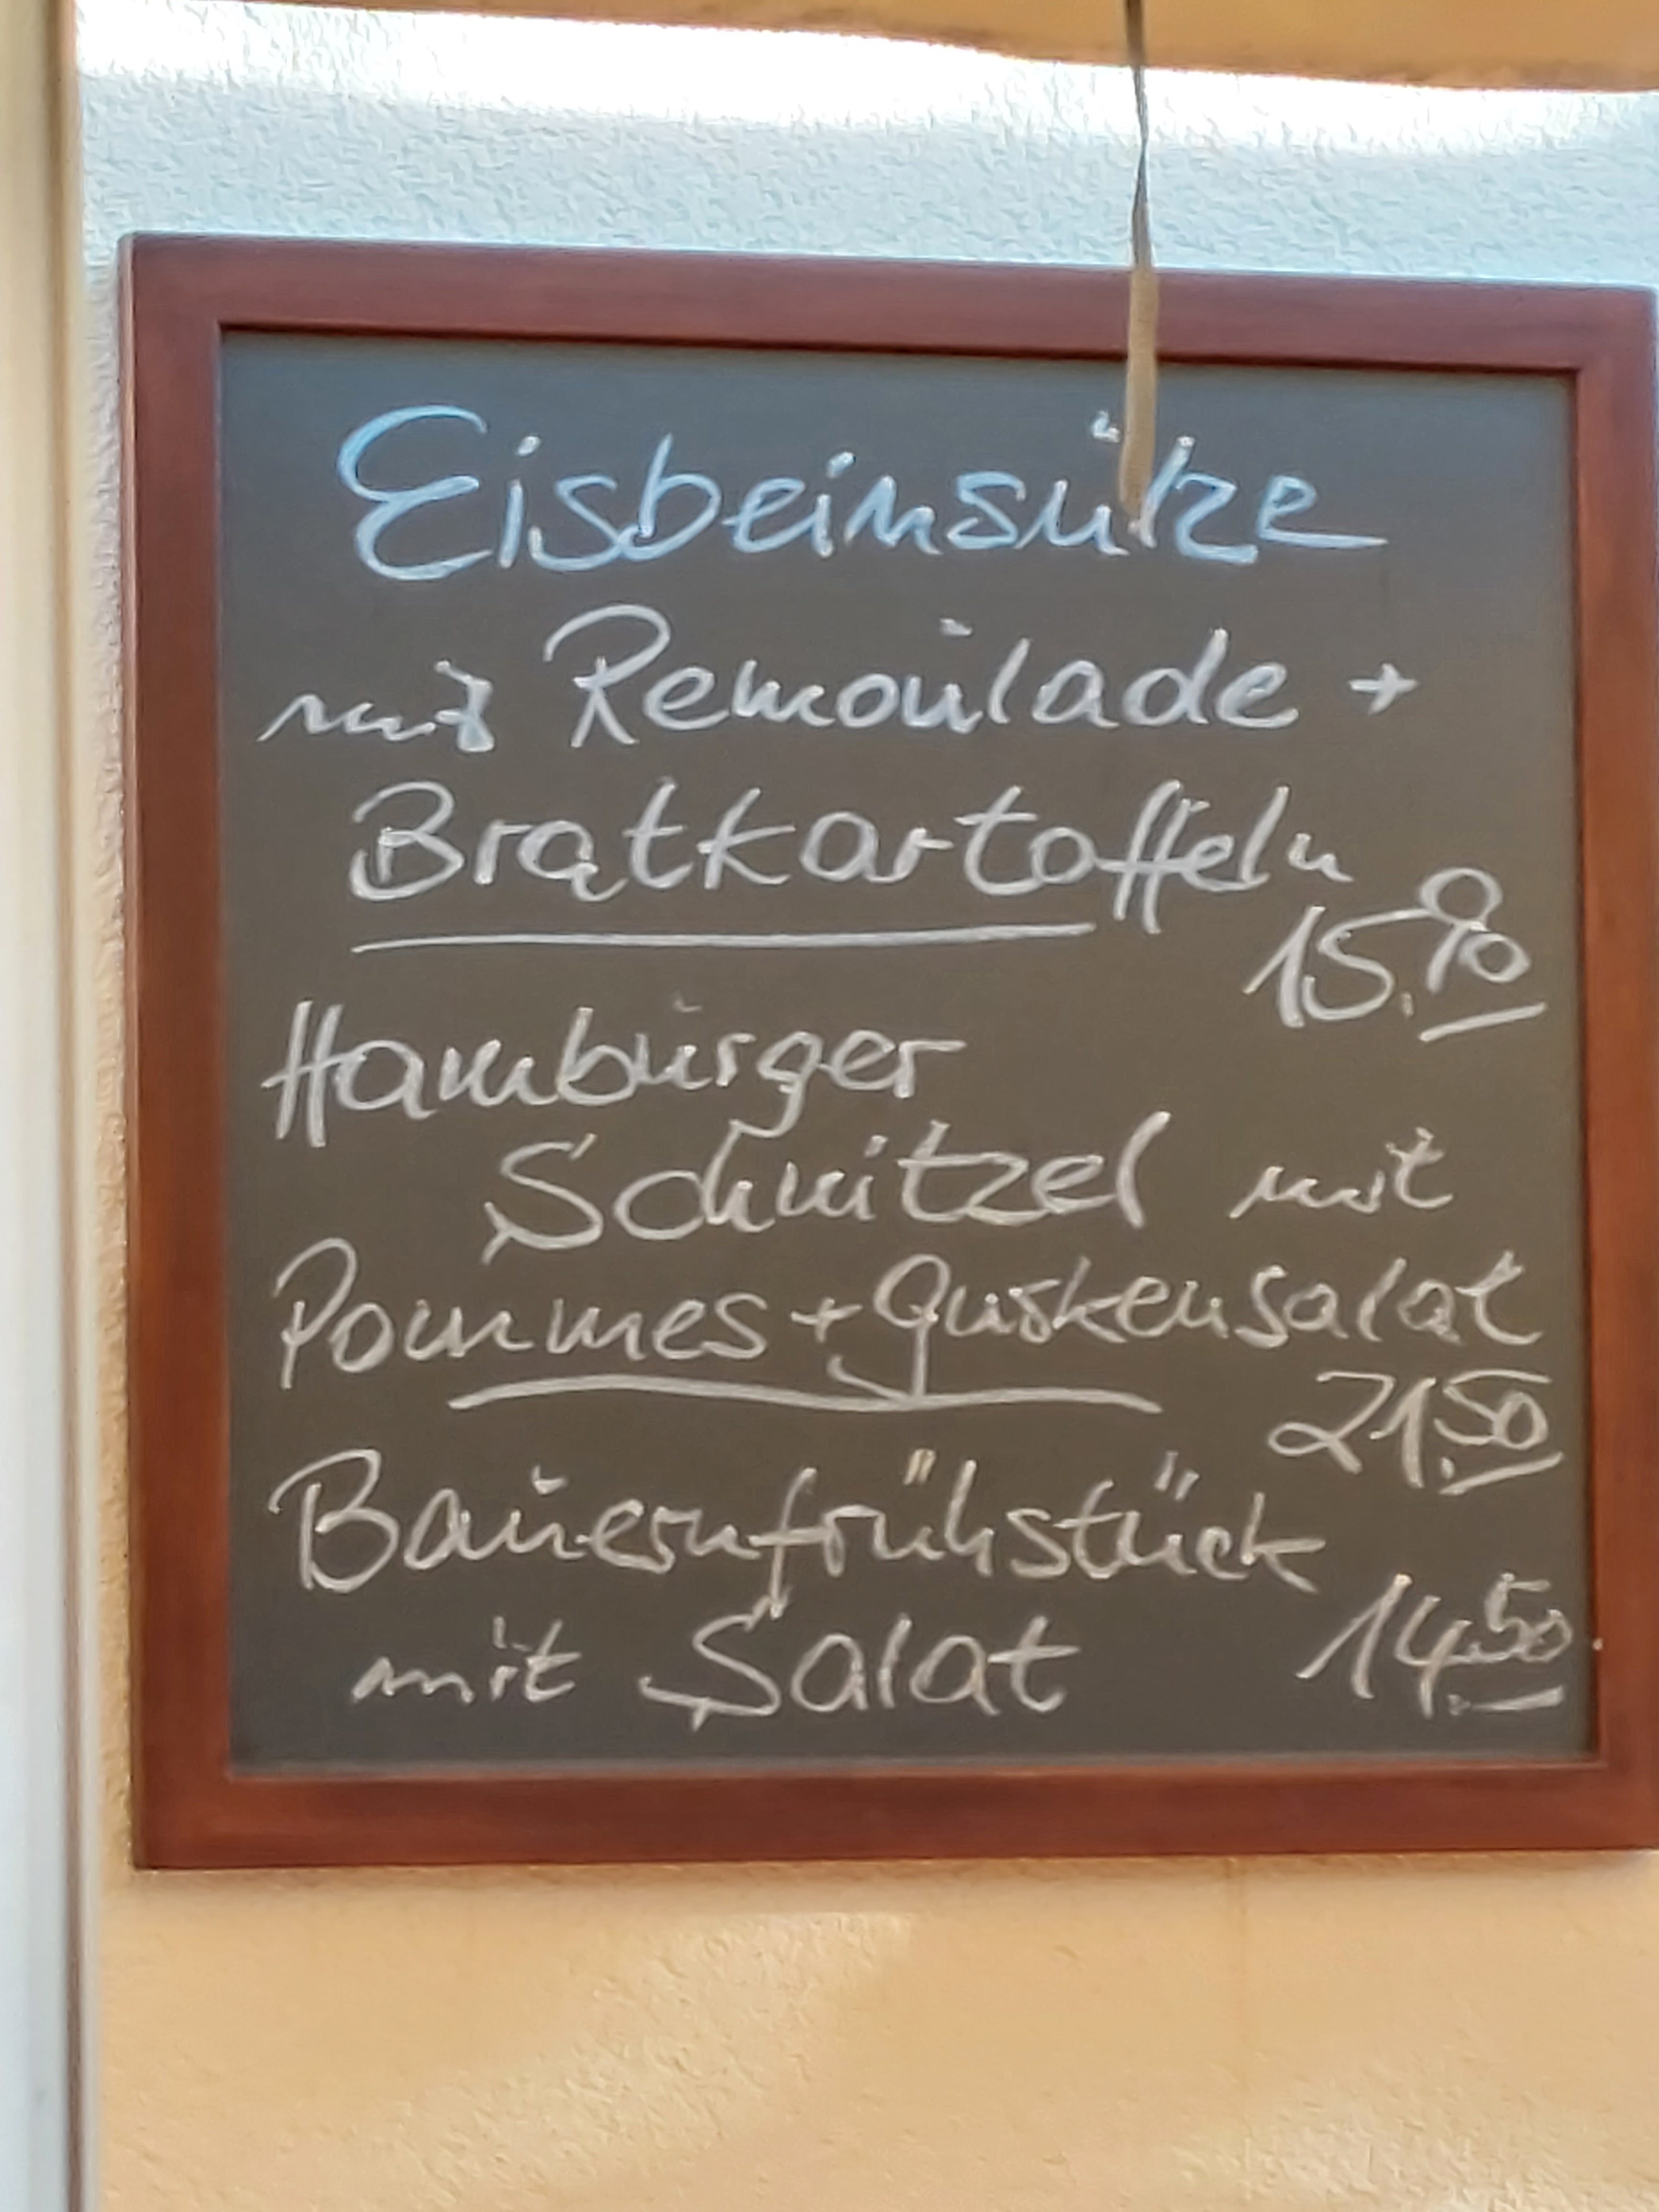 Eisbeinsülze
mit Remoulade +
Bratkartoffeln
15,90
Hamburger
Schnitzel mit
Pommes + Gurkensalat
21,50
Bauernfrühstück
mit Salat 14,50